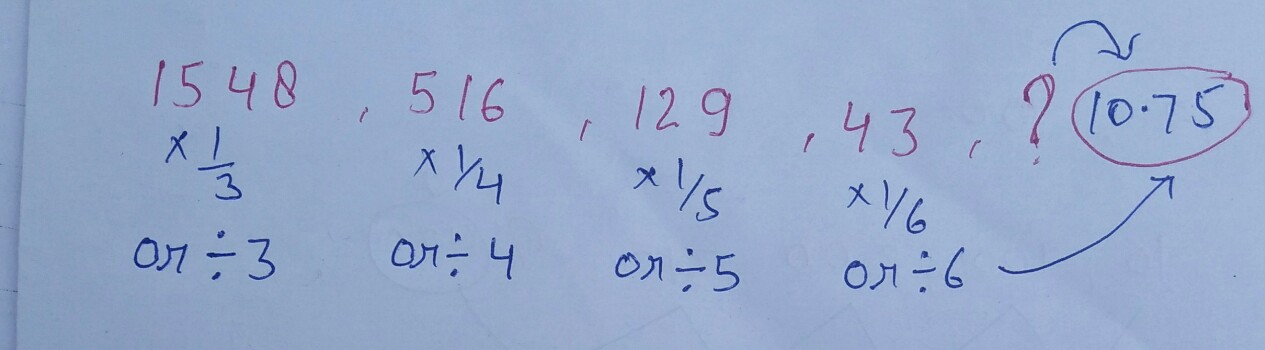 1548 , 516 , 129 , 43 , ? 10.75
× 1/3 × 1/4 × 1/5 × 1/6
or ÷ 3 or ÷ 4 or ÷ 5 or ÷ 6